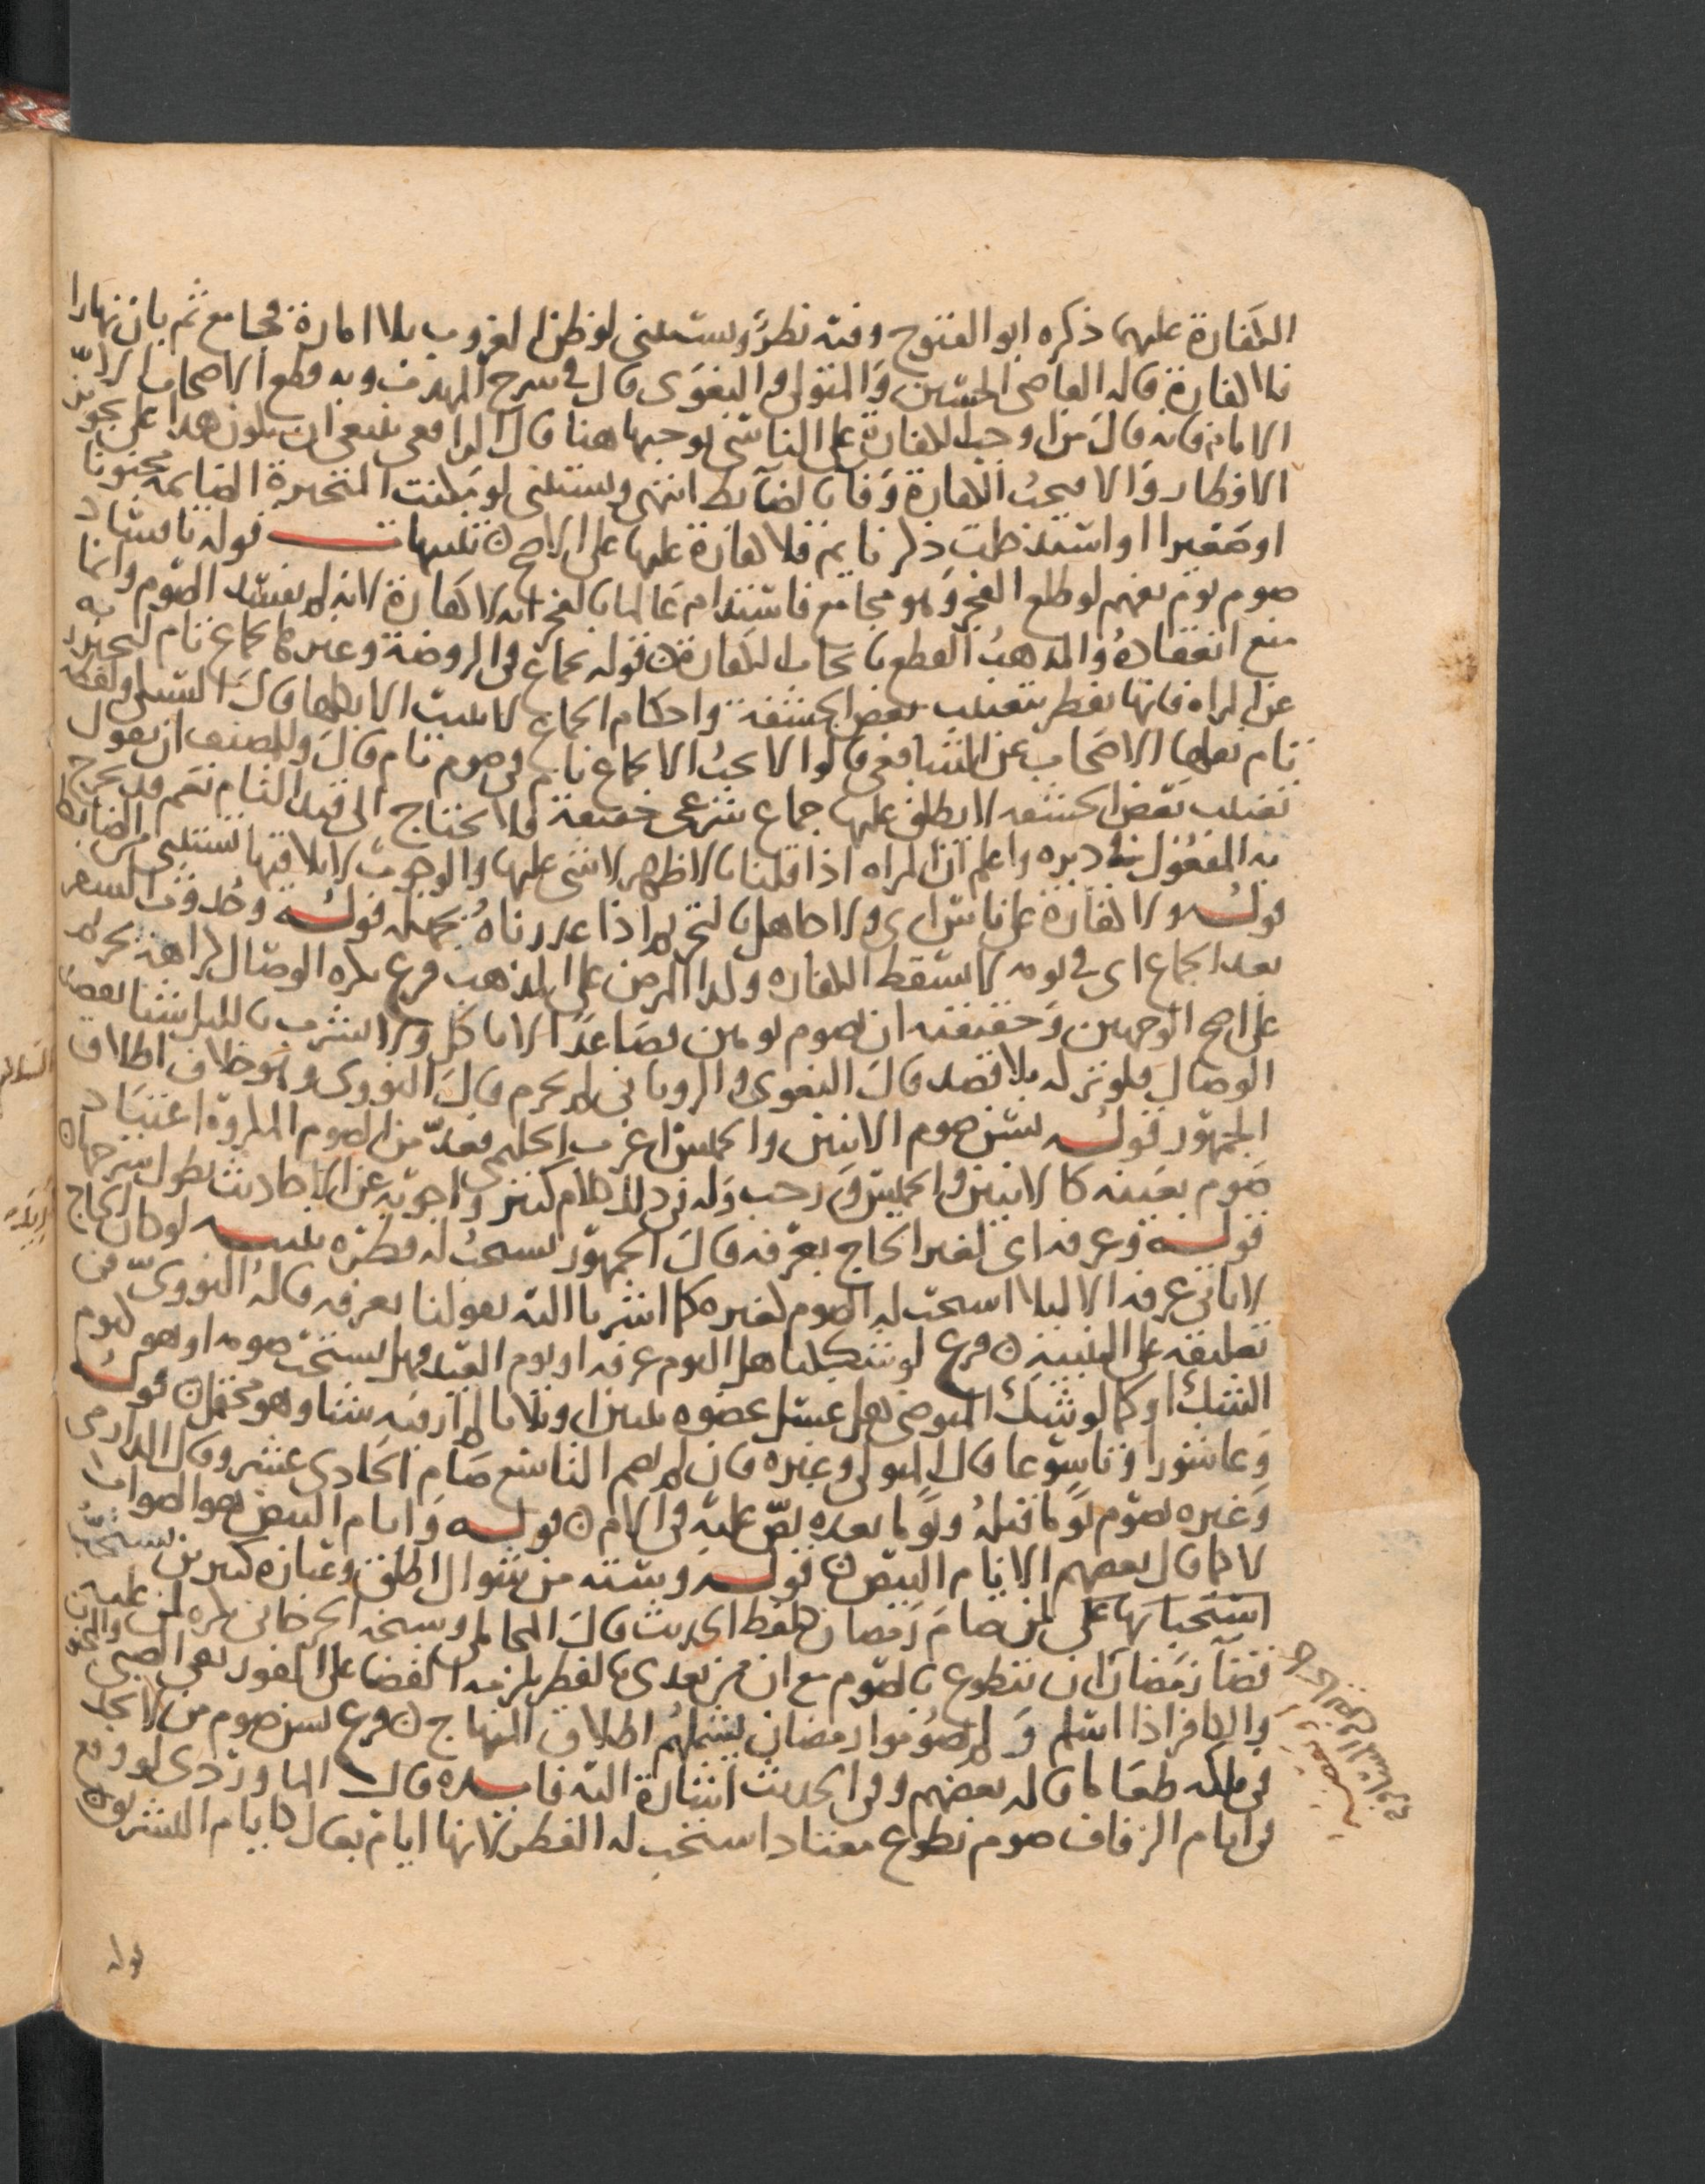 الكفارة عليهما ذكره ابو الفتوح وفيه نظر ويستثنى لو ظن الغروب بلا امارة فجامع ثم بان نهارا
فلا كفارة قاله القاضي الحسين والمتولي والبغوي قال في شرح المهذب وبه قطع الاصحاب الا
الامام فانه قال من اوجب الكفارة على الناسي يوجبها هنا قال الرافعي ينبغي ان يكون هذا على تجويز
الافطار والا فيجب الكفارة وفا بالضابط انتهى ويستثنى لو مكنت المتحيرة الصائمة مجنونا
او صغيرا او استدخلت ذكر نائم فلا كفارة عليها على الاصح تنبيهات قوله بافساد
صوم يوم يفهم لو طلع الفجر وهو مجامع فاستدام عالما بالفجر انه لا كفارة لانه لم يفسد الصوم وانما
منع انعقاده والمذهب القطع بايجاب الكفارة قوله بجماع في الروضة وغيرها بجماع تام ليحترز به
عن المراه فانها تفطر بتغييب بعض الحشفة واحكام الجماع لا يثبت الا بكلها قال السبكي ولفظة
تام نقلها الاصحاب عن الشافعي قالوا لا يجب الا بجماع تام في صوم تام قال وللمصنف ان يقول
تغييب بعض الحشفه لا يطلق عليها جماع شرعي حقيقة فلا يحتاج الى قيد التام نعم قد يخرج
به المفعول في دبره واعلم ان المراه اذا قلنا بالاظهر لا شي عليها والوجوب لا يلاقيها تستثنى من الضابط
قوله ولا كفارة على ناس اي ولا جاهل بالتحريم اذا عذرناه بجهله قوله وحدوث السفر
بعد الجماع اي في يومه لا يسقط الكفاره وكذا المرض على المذهب فرع يكره الوصال كراهة تحريم
على اصح الوجهين وحقيقته ان يصوم يومين فصاعدا لا ياكل ولا يشرب بالليل شيا بقصد
الوصال فلو تركه بلا قصد قال البغوي والروياني لم يحرم قال النووي وهو خلاف اطلاق
الجمهور قوله يسن صوم الاثنين والخميس اغرب الحليمي فعد من الصوم المكروه اعتياد
صوم بعينه كالاثنين والخميس ورجب وله في ذلك كلام كثير واجوبة عن الاحاديث يطول شرحها
قوله وعرفه اي لغير الحاج بعرفه قال الجمهور يستحب له فطره تنبيه لو كان الحاج
لا ياتي عرفه الا ليلا استحب له الصوم كغيره كما اشرنا اليه بقولنا بعرفه قاله النووي في
تعليقه على التنبيه فرع لو شككنا هل اليوم عرفه او يوم العيد فهل يستحب صومه او هو كيوم
الشك او كما لو شك المتوضي هل غسل عضوه ثنتين او ثلاثا لم ار فيه شيا وهو محتمل قوله
وعاشورا وتاسوعا قال المتولي وغيره فان لم يصم التاسع صام الحادي عشر وقال الدارمي
وغيره يصوم يوما قبله ويوما بعده نص عليه في الام قوله وايام البيض هو الصواب
لا كما قال بعضهم الايام البيض قوله وسته من شوال اطلق وعبارة كثيرين يستحب
استحبابها على من صام رمضان كلفظ الحديث قال المحاملي وشيخه الجرجاني يكره لمن عليه
قضا رمضان ان يتطوع بالصوم مع ان من تعدى بالفطر يلزمه القضا على الفور نعم الصبي والمجنون
والكافر اذا اسلم ولم يصوموا رمضان يشملهم اطلاق المنهاج فرع يسن صوم من لا يجد
في ملكه طعاما قاله بعضهم وفي الحديث اشارة اليه فايده قال الماوردي لو وقع
في ايام الزفاف صوم تطوع معتاد استحب له الفطر لانها ايام بعال كايام التشريق